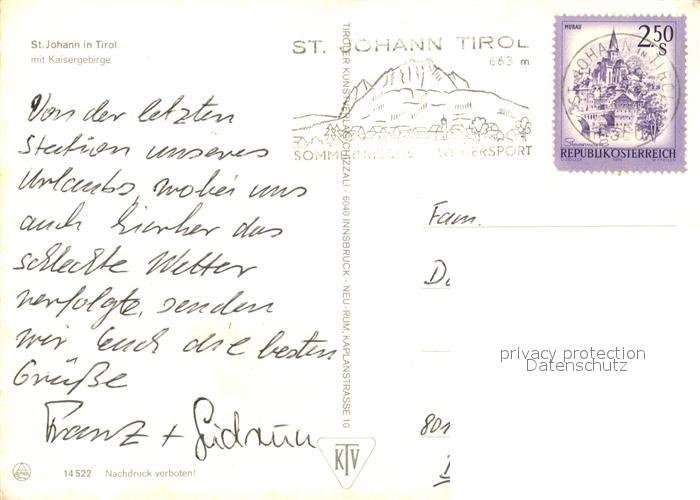 St. Johann in Tirol
mit Kaisergebirge
Von der letzten
Station unseres
Urlaubs, wobei uns
auch hierher das
schlechte Wetter
verfolgte, senden
wir Euch die besten
Grüße
Franz + Gudrun
14 522 Nachdruck verboten!
TIROLER KUNSTVERLAG CHIZZALI · 6040 INNSBRUCK - NEU-RUM, KAPLANSTRASSE 10
KTV
ST. JOHANN TIROL
663 m
SOMMERFRISCHE WINTERSPORT
MURAU
2.50
S
ST. JOHANN IN TIROL
REPUBLIK ÖSTERREICH
Fam.
D
801
privacy protection
Datenschutz